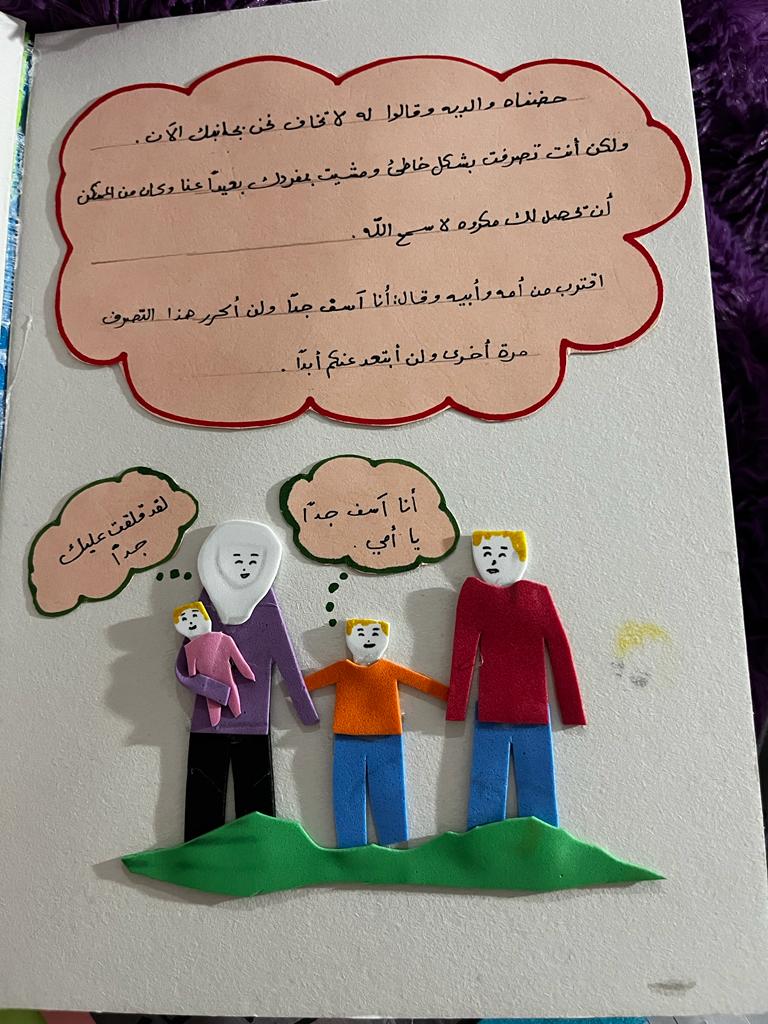 حضناه والديه وقالوا له لا تخاف نحن بجانبك الآن.
ولكن أنت تصرفت بشكل خاطئ ومشيت بمفردك بعيدًا عنا وكان من الممكن
أن تحصل لك مكروه لا سمح الله.
اقترب من أمه وأبيه وقال: أنا آسف جدًا ولن أكرر هذا التصرف
مرة أخرى ولن أبتعد عنكم أبدًا.
لقد قلقت عليك
جدًا
أنا آسف جدًا
يا أمي.